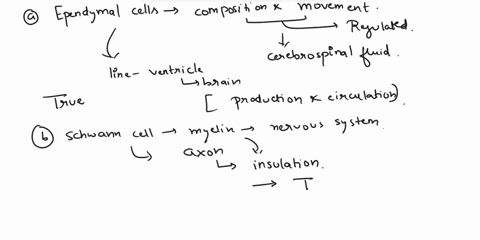 ⓐ Ependymal cells → composition & movement.
Regulated.
cerebrospinal fluid.
line - ventricle
brain
True [production & circulation].
ⓑ Schwann cell → myelin → nervous system.
axon
insulation.
→ T